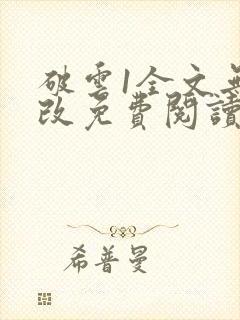 破雲1全文無
改免費閱讀
希普曼